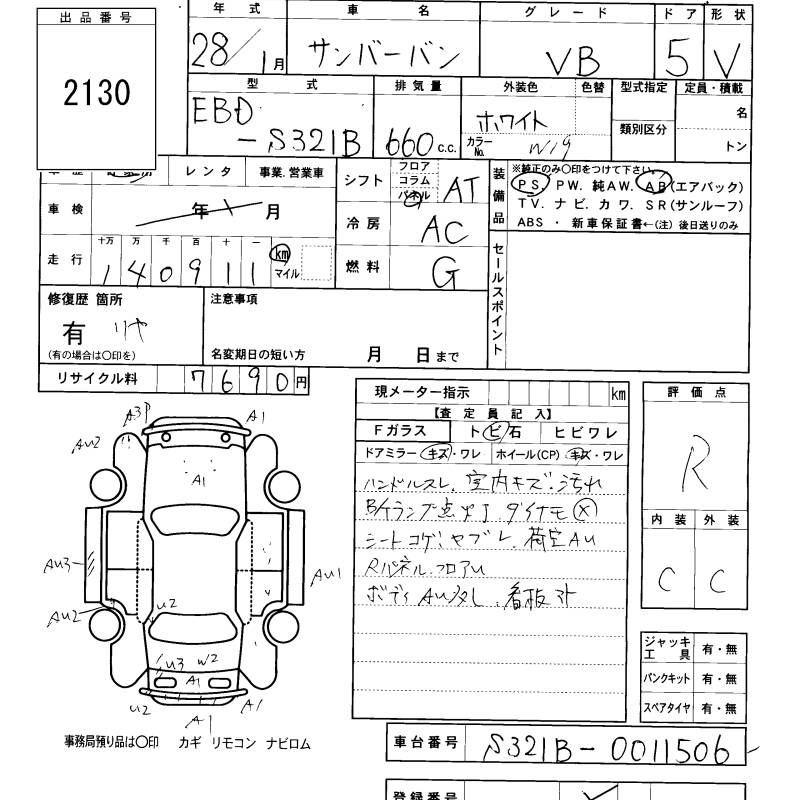 出品番号
2130
年式 車名 グレード ドア 形状
28/1月 サンバーバン VB 5 V
型式 排気量 外装色 色替 型式指定 定員・積載
EBD
-S321B 660c.c. ホワイト 名
カラーNo. W19 類別区分 トン
レンタ 事業.営業車
シフト フロア コラム パネル AT
装備品
※純正のみ〇印をつけて下さい。
PS. PW. 純AW. AB(エアバック)
TV. ナビ. カワ. SR(サンルーフ)
ABS ・ 新車保証書←(注) 後日送りのみ
車検 年 月
冷房 AC
走行 十万 万 千 百 十 一
140911 km マイル
燃料 G
セールスポイント
修復歴 箇所
有 リヤ
(有の場合は〇印を)
注意事項
名変期日の短い方 月 日まで
リサイクル料 7690円
現メーター指示 km
【査定員記入】
Fガラス トビ石 ヒビワレ
ドアミラー キズ・ワレ ホイール(CP) キズ・ワレ
ハンドルスレ. 室内キズ.汚れ
シートコゲ.ヤブレ. 荷室AU
Rパネル.フロアU
評価点
R
内装 外装
C C
A3P A1
AU2 A1
AU3 AU1
AU2 U2
U3 W2
A1
U2 A1 A1
ジャッキ工具 有・無
パンクキット 有・無
スペアタイヤ 有・無
事務局預り品は〇印 カギ リモコン ナビロム
車台番号 S321B-0011506
登録番号